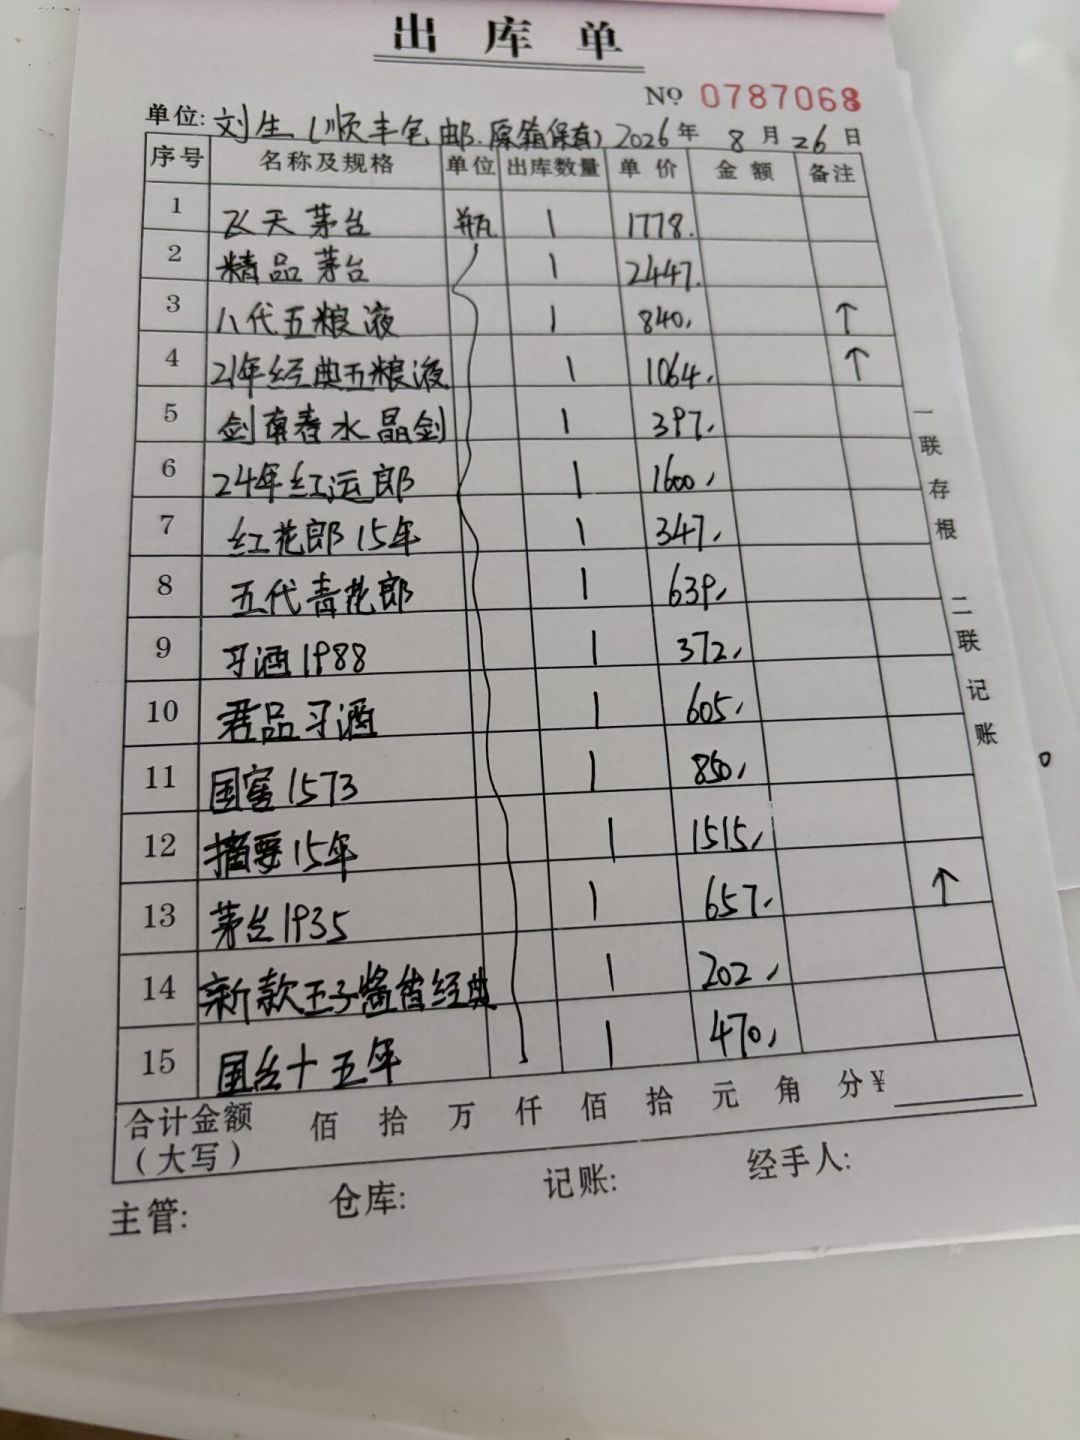 出库单
№ 0787068
单位: 刘生(顺丰包邮.原箱保真) 2026年 8月 26日
序号 名称及规格 单位 出库数量 单价 金额 备注
1 飞天茅台 瓶 1 1778.
2 精品茅台 1 2447.
3 八代五粮液 1 840, ↑
4 21年经典五粮液 1 1064, ↑
5 剑南春水晶剑 1 397,
6 24年红运郎 1 1600,
7 红花郎15年 1 347,
8 五代青花郎 1 639,
9 习酒1988 1 372,
10 君品习酒 1 605,
11 国窖1573 1 850,
12 摘要15年 1 1515,
13 茅台1935 1 657, ↑
14 新款王子酱香经典 1 202,
15 国台十五年 1 470,
合计金额(大写) 佰 拾 万 仟 佰 拾 元 角 分 ¥
主管: 仓库: 记账: 经手人:
一联存根 二联记账